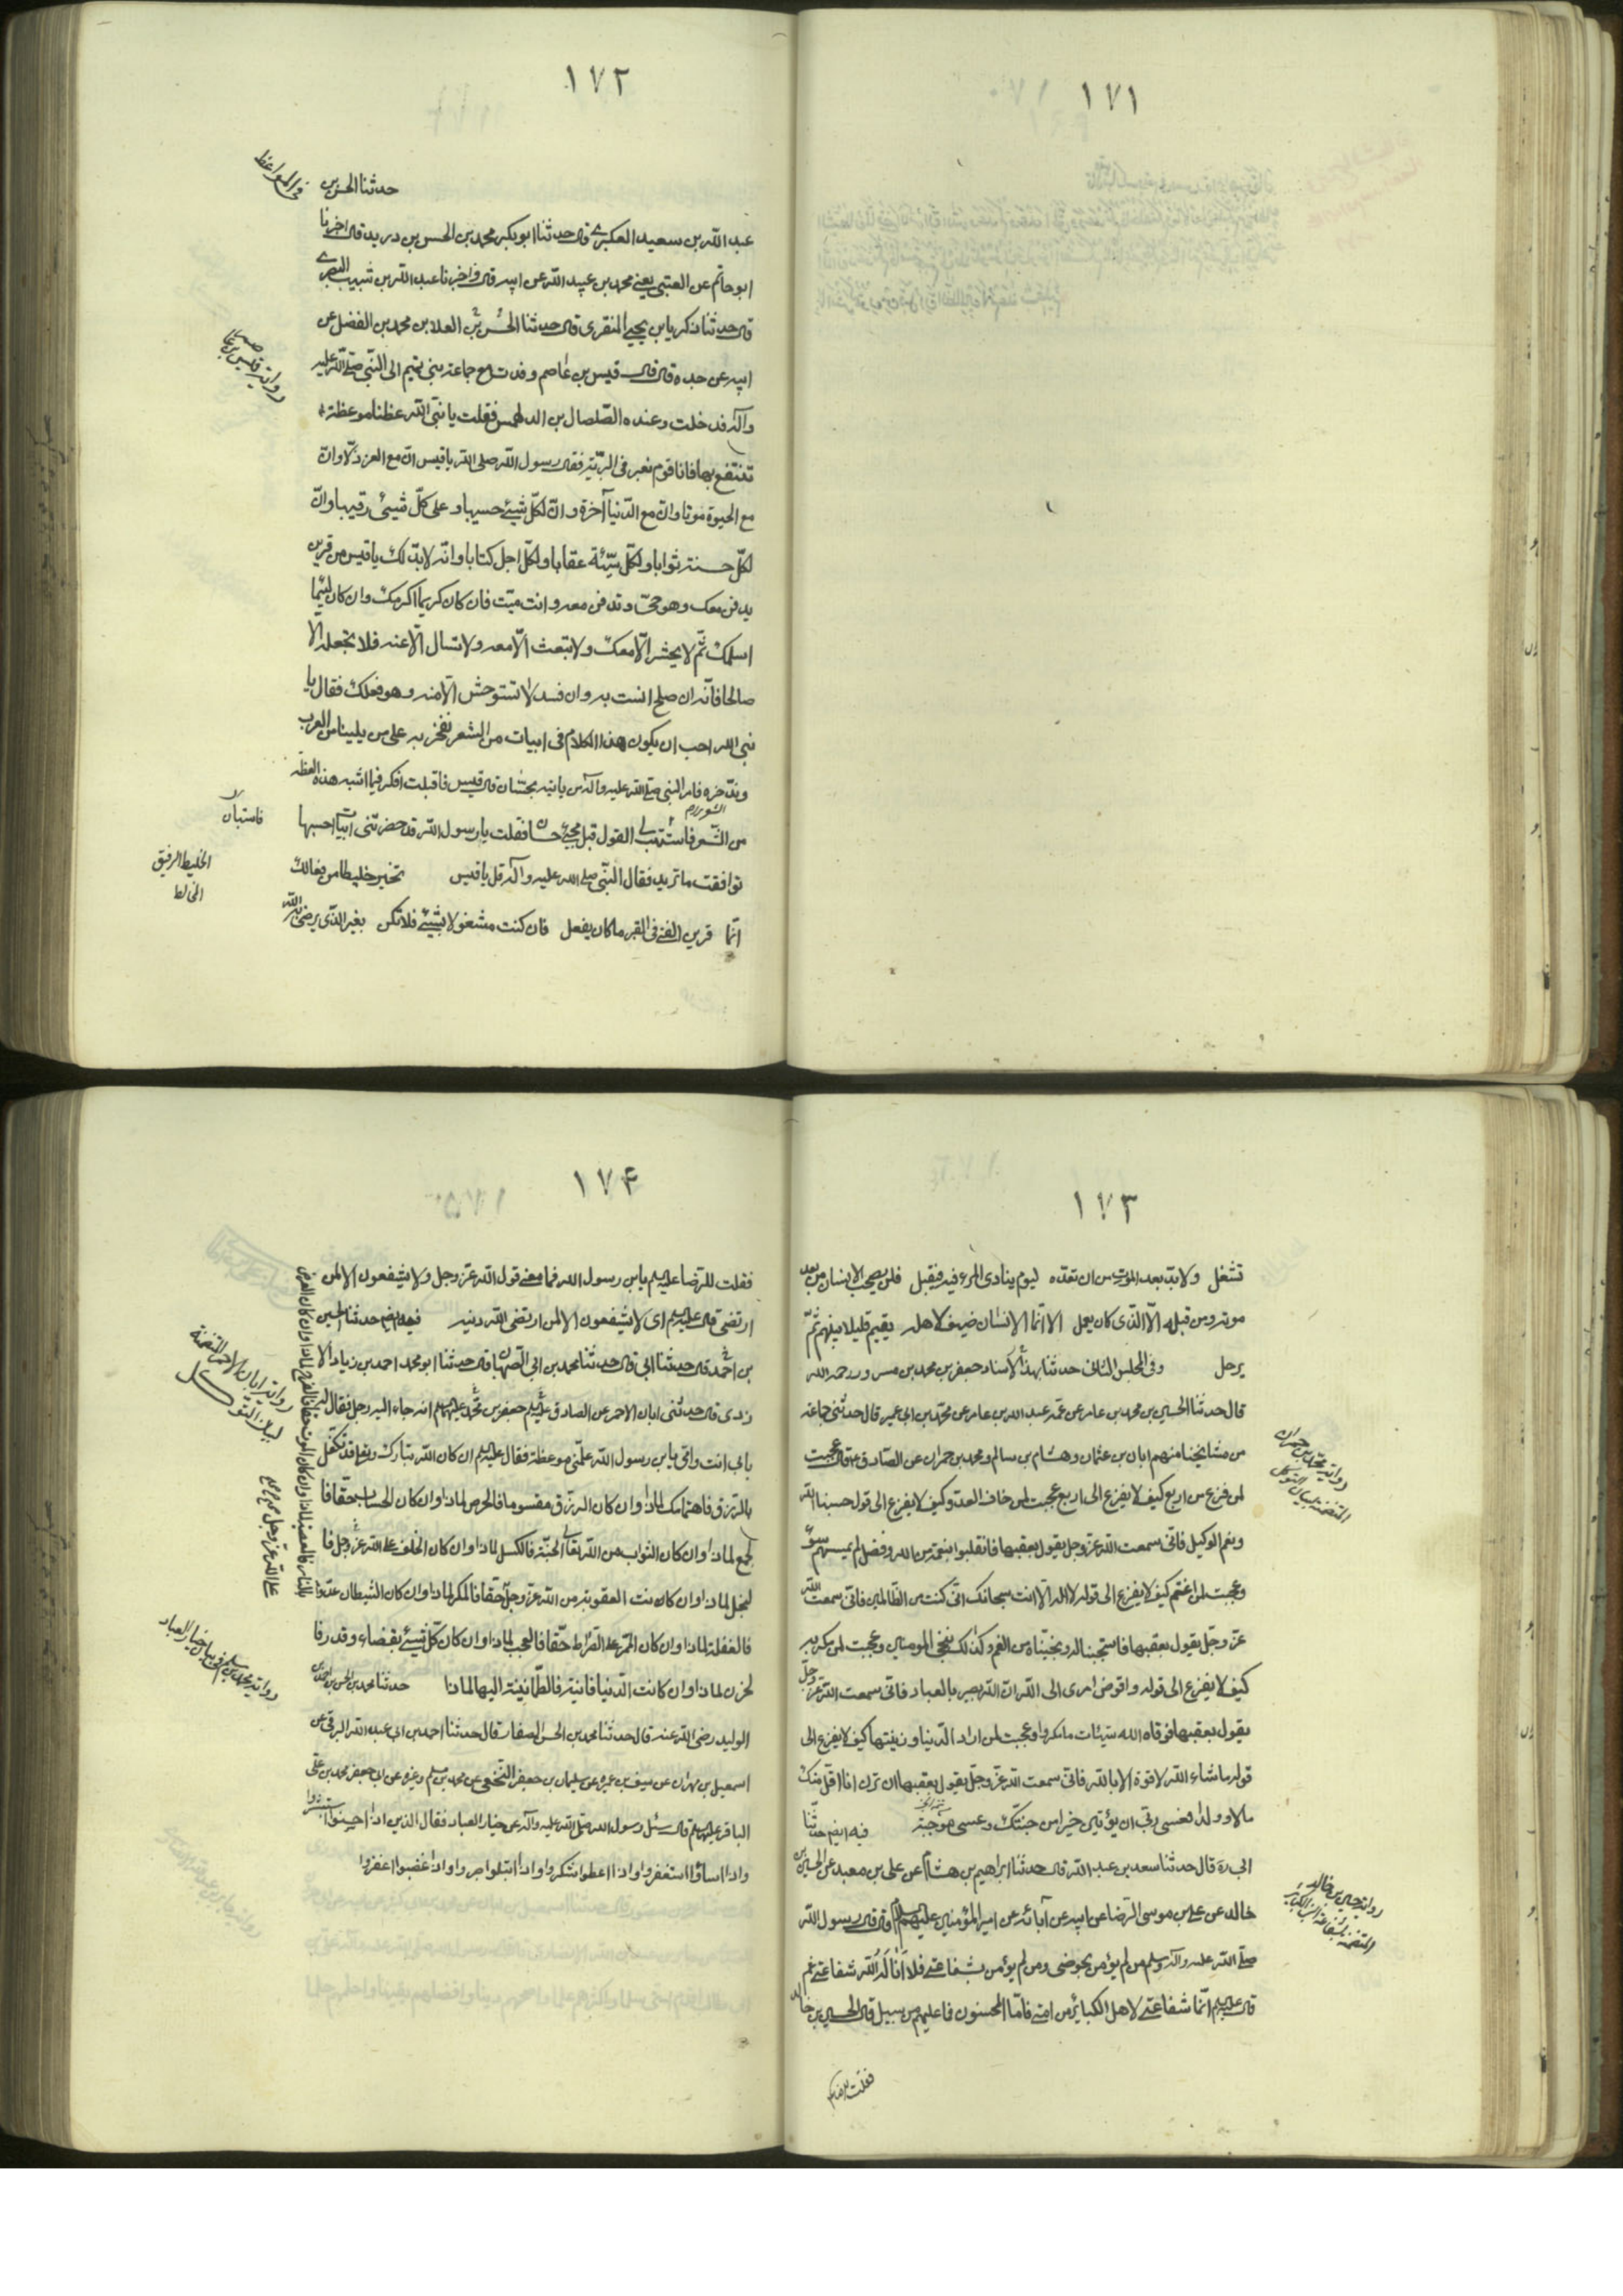 ١٧١
١٧٢
حدثنا الحسن بن
فى المواعظ
عبد الله بن سعيد العسكرى قال حدثنا ابو بكر محمد بن الحسن بن دريد قال اخبرنا
ابو حاتم عن العتبى يعنى محمد بن عبيد الله عن ابيه قال و اخبرنا عبد الله بن شبيب البصرى
قال حدثنا زكريا بن يحيى المنقرى قال حدثنا العلا بن محمد بن الفضل عن
ابيه عن جده قال قال قيس بن عاصم وفدت مع جماعة من بنى تميم الى النبى صلى الله عليه
وآله فدخلت وعنده الصلصال بن الدلهمس فقلت يا نبى الله عظنا موعظة
ننتفع بها فانا قوم نعبر فى البرية فقال رسول الله صلى الله يا قيس ان مع العز ذلا وان
مع الحيوة موتا وان مع الدنيا آخرة و ان لكل شيئ حسيبا و على كل شيئ رقيبا وان
لكل حسنة ثوابا ولكل سيئة عقابا ولكل اجل كتابا وانه لابد لك يا قيس من قرين
يدفن معك وهو حى وتدفن معه وانت ميت فان كان كريما اكرمك وان كان لئيما
اسلمك ثم لا يحشر الا معك ولا تبعث الا معه ولا تسال الا عنه فلا تجعله الا
صالحا فانه ان صلح انست به وان فسد لا تستوحش الا منه وهو فعلك فقال يا
نبى الله احب ان يكون هذا الكلام فى ابيات من الشعر نفخر به على من يلينا من العرب
وندخره فامر النبى صلى الله عليه وآله من ياتيه بحسان قال قيس فاقبلت افكر فيما اشبه هذه العظة
من الشعر فاستتب لى القول قبل مجيئ حسان فقلت يا رسول الله قد حضرتنى ابيات احسبها
فاستبان
توافقت ما تريد فقال النبى صلى الله عليه وآله قل يا قيس تخير خليطا من فعالك
الخليط الرفيق
المخالط
انما قرين الفتى فى القبر ما كان يفعل فان كنت مشغولا بشيئ فلا تكن بغير الذى يرضى به الله
١٧٣
تشغل ولابد بعد الموت من ان تعده ليوم ينادى المرء فيه فيقبل فلن يصحب الانسان من بعد
موته ومن قبله الا الذى كان يعمل الا انما الانسان ضيف لاهله يقيم قليلا بينهم ثم
يرحل وفى المجلس الثانى حدثنا بهذا الاسناد جعفر بن محمد بن مسرور رحمه الله
قال حدثنا الحسين بن محمد بن عامر عن عمه عبد الله بن عامر عن محمد بن ابى عمير قال حدثنى جماعة
من مشايخنا منهم ابان بن عثمان وهشام بن سالم ومحمد بن حمران عن الصادق ع قال عجبت
لمن فزع من اربع كيف لا يفزع الى اربع عجبت لمن خاف العدو كيف لا يفزع الى قوله حسبنا الله
ونعم الوكيل فانى سمعت الله عز وجل يقول بعقبها فانقلبوا بنعمة من الله وفضل لم يمسسهم سوء
وعجبت لمن اغتم كيف لا يفزع الى قوله لا اله الا انت سبحانك انى كنت من الظالمين فانى سمعت الله
عز وجل يقول بعقبها فاستجبنا له ونجيناه من الغم وكذلك ننجى المومنين وعجبت لمن مكر به
كيف لا يفزع الى قوله وافوض امرى الى الله ان الله بصير بالعباد فانى سمعت الله عز وجل
يقول بعقبها فوقاه الله سيئات ما مكروا وعجبت لمن اراد الدنيا وزينتها كيف لا يفزع الى
قوله ما شاء الله لا قوة الا بالله فانى سمعت الله عز وجل يقول بعقبها ان ترن انا اقل منك
مالا و ولدا فعسى ربى ان يؤتين خيرا من جنتك وعسى موجبة فيه ايضا حدثنا
ابى ره قال حدثنا سعد بن عبد الله قال حدثنا ابراهيم بن هشام عن على بن معبد عن الحسين بن
خالد عن على بن موسى الرضا عن ابيه عن آبائه عن امير المؤمنين عليهم السلم قال قال رسول الله
صلى الله عليه وآله وسلم من لم يؤمن بحوضى ومن لم يؤمن بشفاعتى فلا انا له الله شفاعتى ثم
قال عليه السلم انما شفاعتى لاهل الكبائر من امتى فاما المحسنون فما عليهم من سبيل قال الحسين بن خالد
فقلت للرضا
١٧۴
فقلت للرضا عليه السلم يا بن رسول الله فما معنى قول الله عز وجل ولا يشفعون الا لمن
ارتضى قال عليه السلم اى لا يشفعون الا لمن ارتضى الله دينه فيه ايضا حدثنا الحسين
بن احمد قال حدثنا ابى قال حدثنا محمد بن ابى الصهبان قال حدثنا ابو محمد احمد بن زياد الا
زدى قال حدثنى ابان الاحمر عن الصادق جعفر بن محمد عليهما السلم انه جاء اليه رجل فقال له
بابى انت وامى يا بن رسول الله علمنى موعظة فقال عليه السلم ان كان الله تبارك وتعالى قد تكفل
بالرزق فاهتمامك لماذا و ان كان الرزق مقسوما فالحرص لماذا وان كان الحساب حقا فا
لجمع لماذا وان كان الثواب من الله تعالى الجنة فالكسل لماذا وان كان الخلف على الله عز وجل فا
لبخل لماذا وان كانت العقوبة من الله عز وجل حقا فالمكر لماذا وان كان الشيطان عدوا
فالغفلة لماذا وان كان الممر على الصراط حقا فالعجب لماذا وان كان كل شيئ بقضاء وقدر فا
لحزن لماذا وان كانت الدنيا فانية فالطمانينة اليها لماذا حدثنا محمد بن الحسن بن احمد بن
الوليد رضى الله عنه قال حدثنا محمد بن الحسن الصفار قال حدثنا احمد بن ابى عبد الله البرقى عن
اسمعيل بن مهران عن سيف بن عميره عن سليمان بن جعفر النخعى عن محمد بن مسلم وغيره عن ابى جعفر محمد بن على
الباقر عليه السلم قال سئل رسول الله صلى الله عليه وآله عن خيار العباد فقال الذين اذا احسنوا استبشروا
واذا اساؤا استغفروا واذا اعطوا شكروا واذا ابتلوا صبروا واذا غضبوا اغفروا